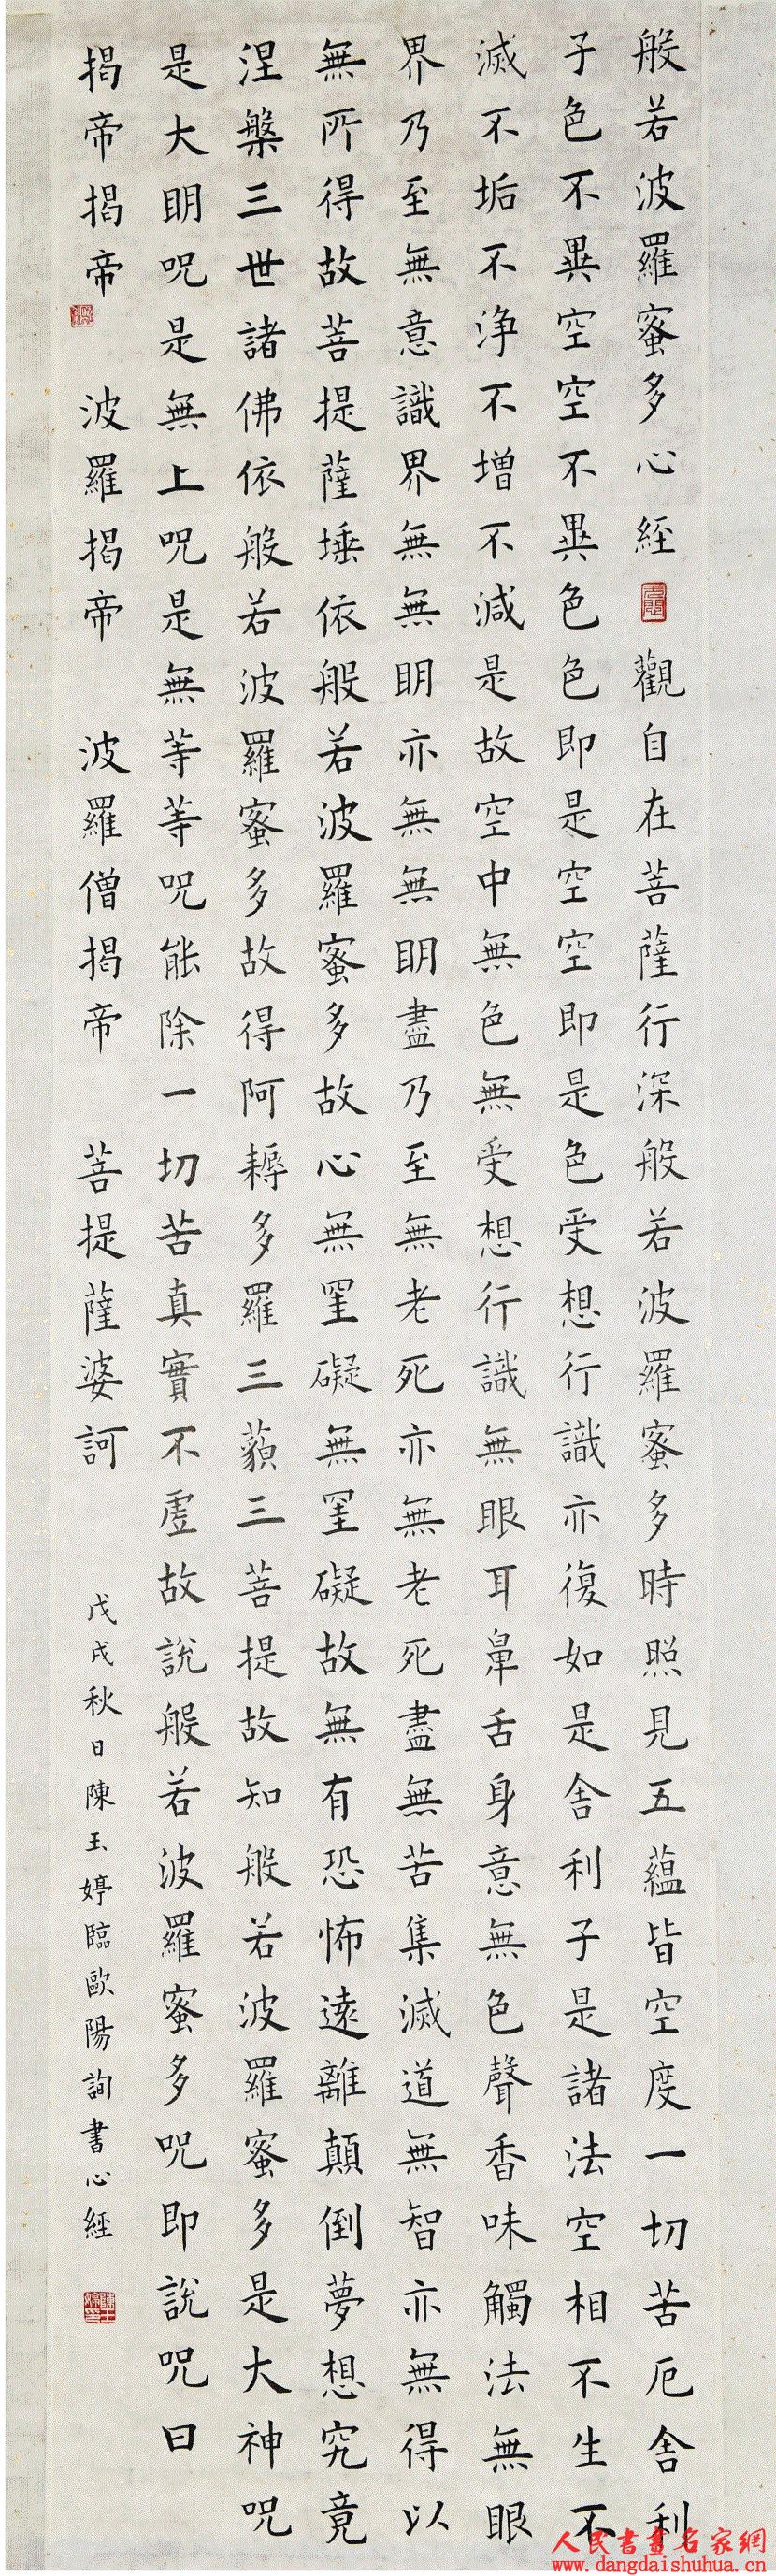 般若波羅蜜多心經 觀自在菩薩行深般若波羅蜜多時照見五蘊皆空度一切苦厄舍利
子色不異空空不異色色即是空空即是色受想行識亦復如是舍利子是諸法空相不生不
滅不垢不淨不增不減是故空中無色無受想行識無眼耳鼻舌身意無色聲香味觸法無眼
界乃至無意識界無無明亦無無明盡乃至無老死亦無老死盡無苦集滅道無智亦無得以
無所得故菩提薩埵依般若波羅蜜多故心無罣礙無罣礙故無有恐怖遠離顛倒夢想究竟
涅槃三世諸佛依般若波羅蜜多故得阿耨多羅三藐三菩提故知般若波羅蜜多是大神呪
是大明呪是無上呪是無等等呪能除一切苦真實不虛故說般若波羅蜜多呪即說呪曰
揭帝揭帝 波羅揭帝 波羅僧揭帝 菩提薩婆訶
戊戌秋日陳玉婷臨歐陽詢書心經
人民書畫名家網
www.dangdaishuhua.cn